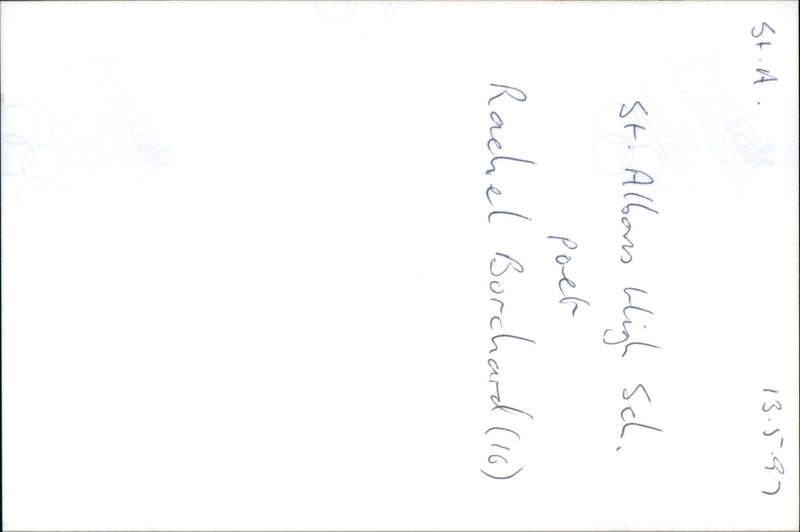 St. A. 13.5.97
St. Albans High Sch.
Poet
Rachel Borchard (16)
Kodak
Kodak